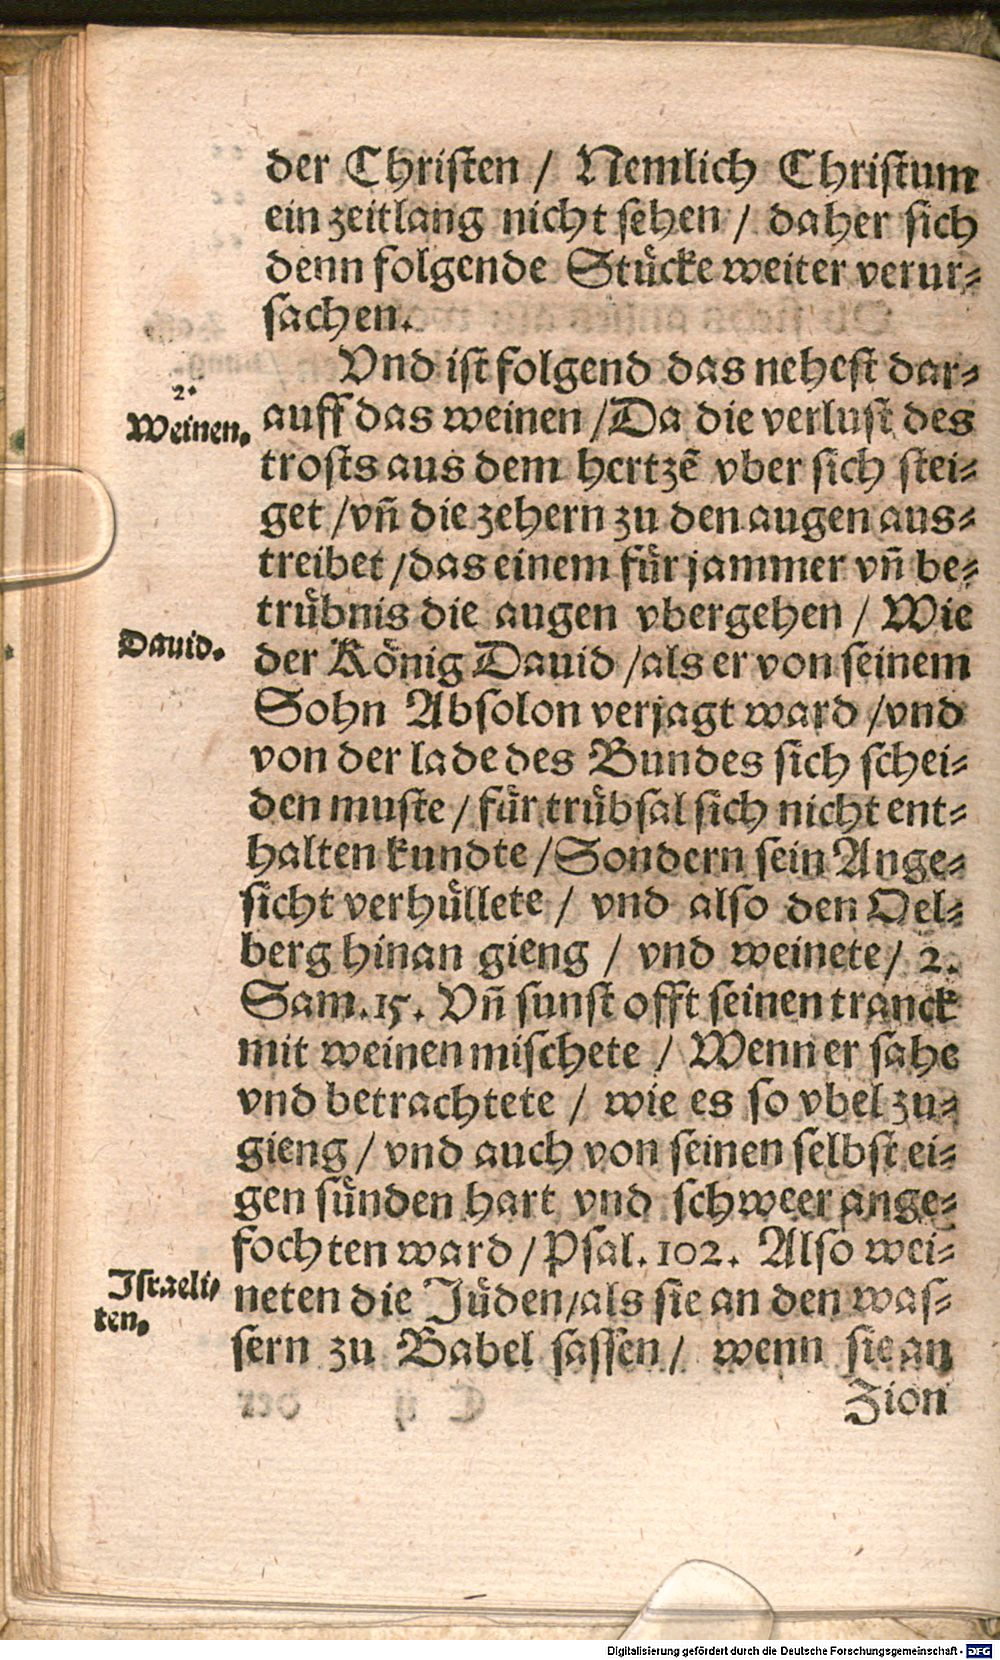 der Christen / Nemlich Christum
ein zeitlang nicht sehen / daher sich
denn folgende Stücke weiter verur-
sachen.
Vnd ist folgend das nehest dar-
2.
Weinen.
auff das weinen / Da die verlust des
trosts aus dem hertzē vber sich stei-
get / vñ die zehern zu den augen aus-
treibet / das einem für jammer vñ be-
trübnis die augen vbergehen / Wie
Dauid.
der König Dauid / als er von seinem
Sohn Absolon verjagt ward / vnd
von der lade des Bundes sich schei-
den muste / für trübsal sich nicht ent-
halten kundte / Sondern sein Ange-
sicht verhüllete / vnd also den Oel-
berg hinan gieng / vnd weinete / 2.
Sam. 15. Vñ sunst offt seinen tranck
mit weinen mischete / Wenn er sahe
vnd betrachtete / wie es so vbel zu-
gieng / vnd auch von seinen selbst ei-
gen sünden hart vnd schweer ange-
fochten ward / Psal. 102. Also wei-
Israeli-
ten.
neten die Jüden / als sie an den was-
sern zu Babel sassen / wenn sie an
Zion
Digitalisierung gefördert durch die Deutsche Forschungsgemeinschaft - DFG